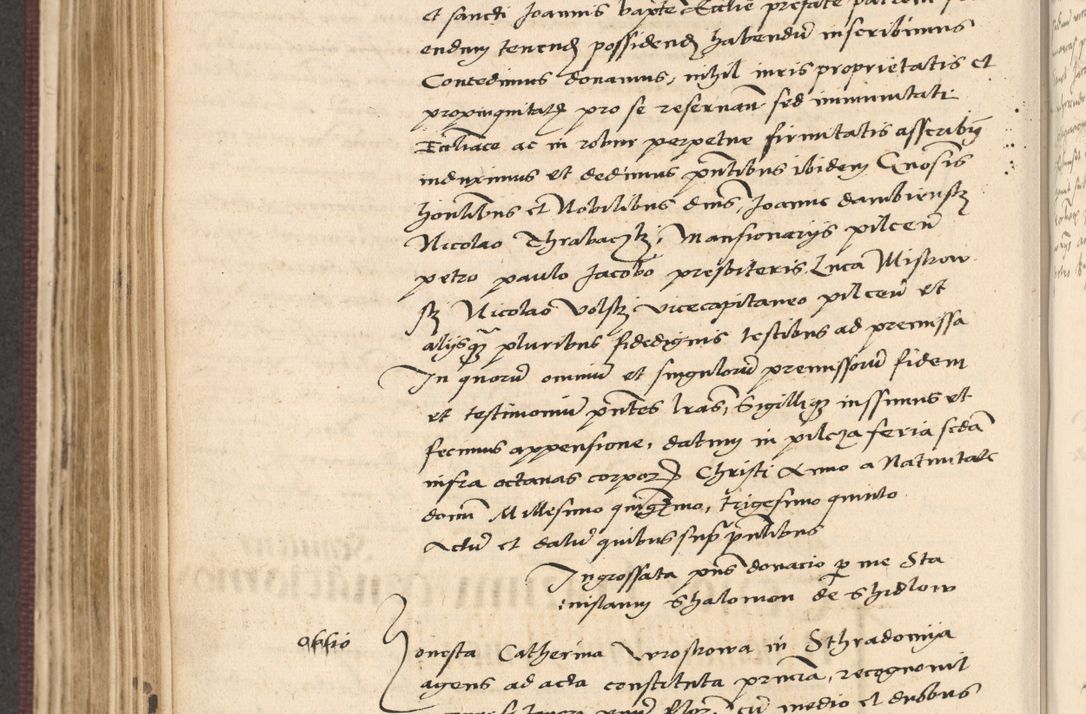 et sancti Joannis bapte Ecclie prefate
endum tenend possidend habendu inscribimus
Concedimus donamus, nihil iuris proprietatis et
propinquitatis pro se reservan sed immunitati
Eccliace ac in robur perpetue firmitatis asscribi
induximus et dedimus pntibus ibidem Gnosis
hontibus et Nobilibus dnis, Joanne dambiensky
Nicolao Thrabaczky, Mansionarijs pilcen
petro paulo Jacobo presbiteris Luca Mistrow
sky Nicolao Volsky vicecapitaneo pilcen et
alijsque pluribus fidedignis testibus ad premissa
In quoru omniu et singuloru premissoru fidem
et testimoniu pntes lras, Sigillique iussimus et
fecimus appensione, datum in pilcza feria scda
infra octavas corporis Christi Anno a Nativitate
domi Millesimo quingmo, trigesimo quinto
Actu et datu quibus supra pntibus
Ingrossata pns donacio p me Sta
nislaum Shalomon de Shidlow
oppio
Honesta Catherina Wrostrowa in Sthradomija
agens ad acta constituta primia, recognovit
medio et duobus